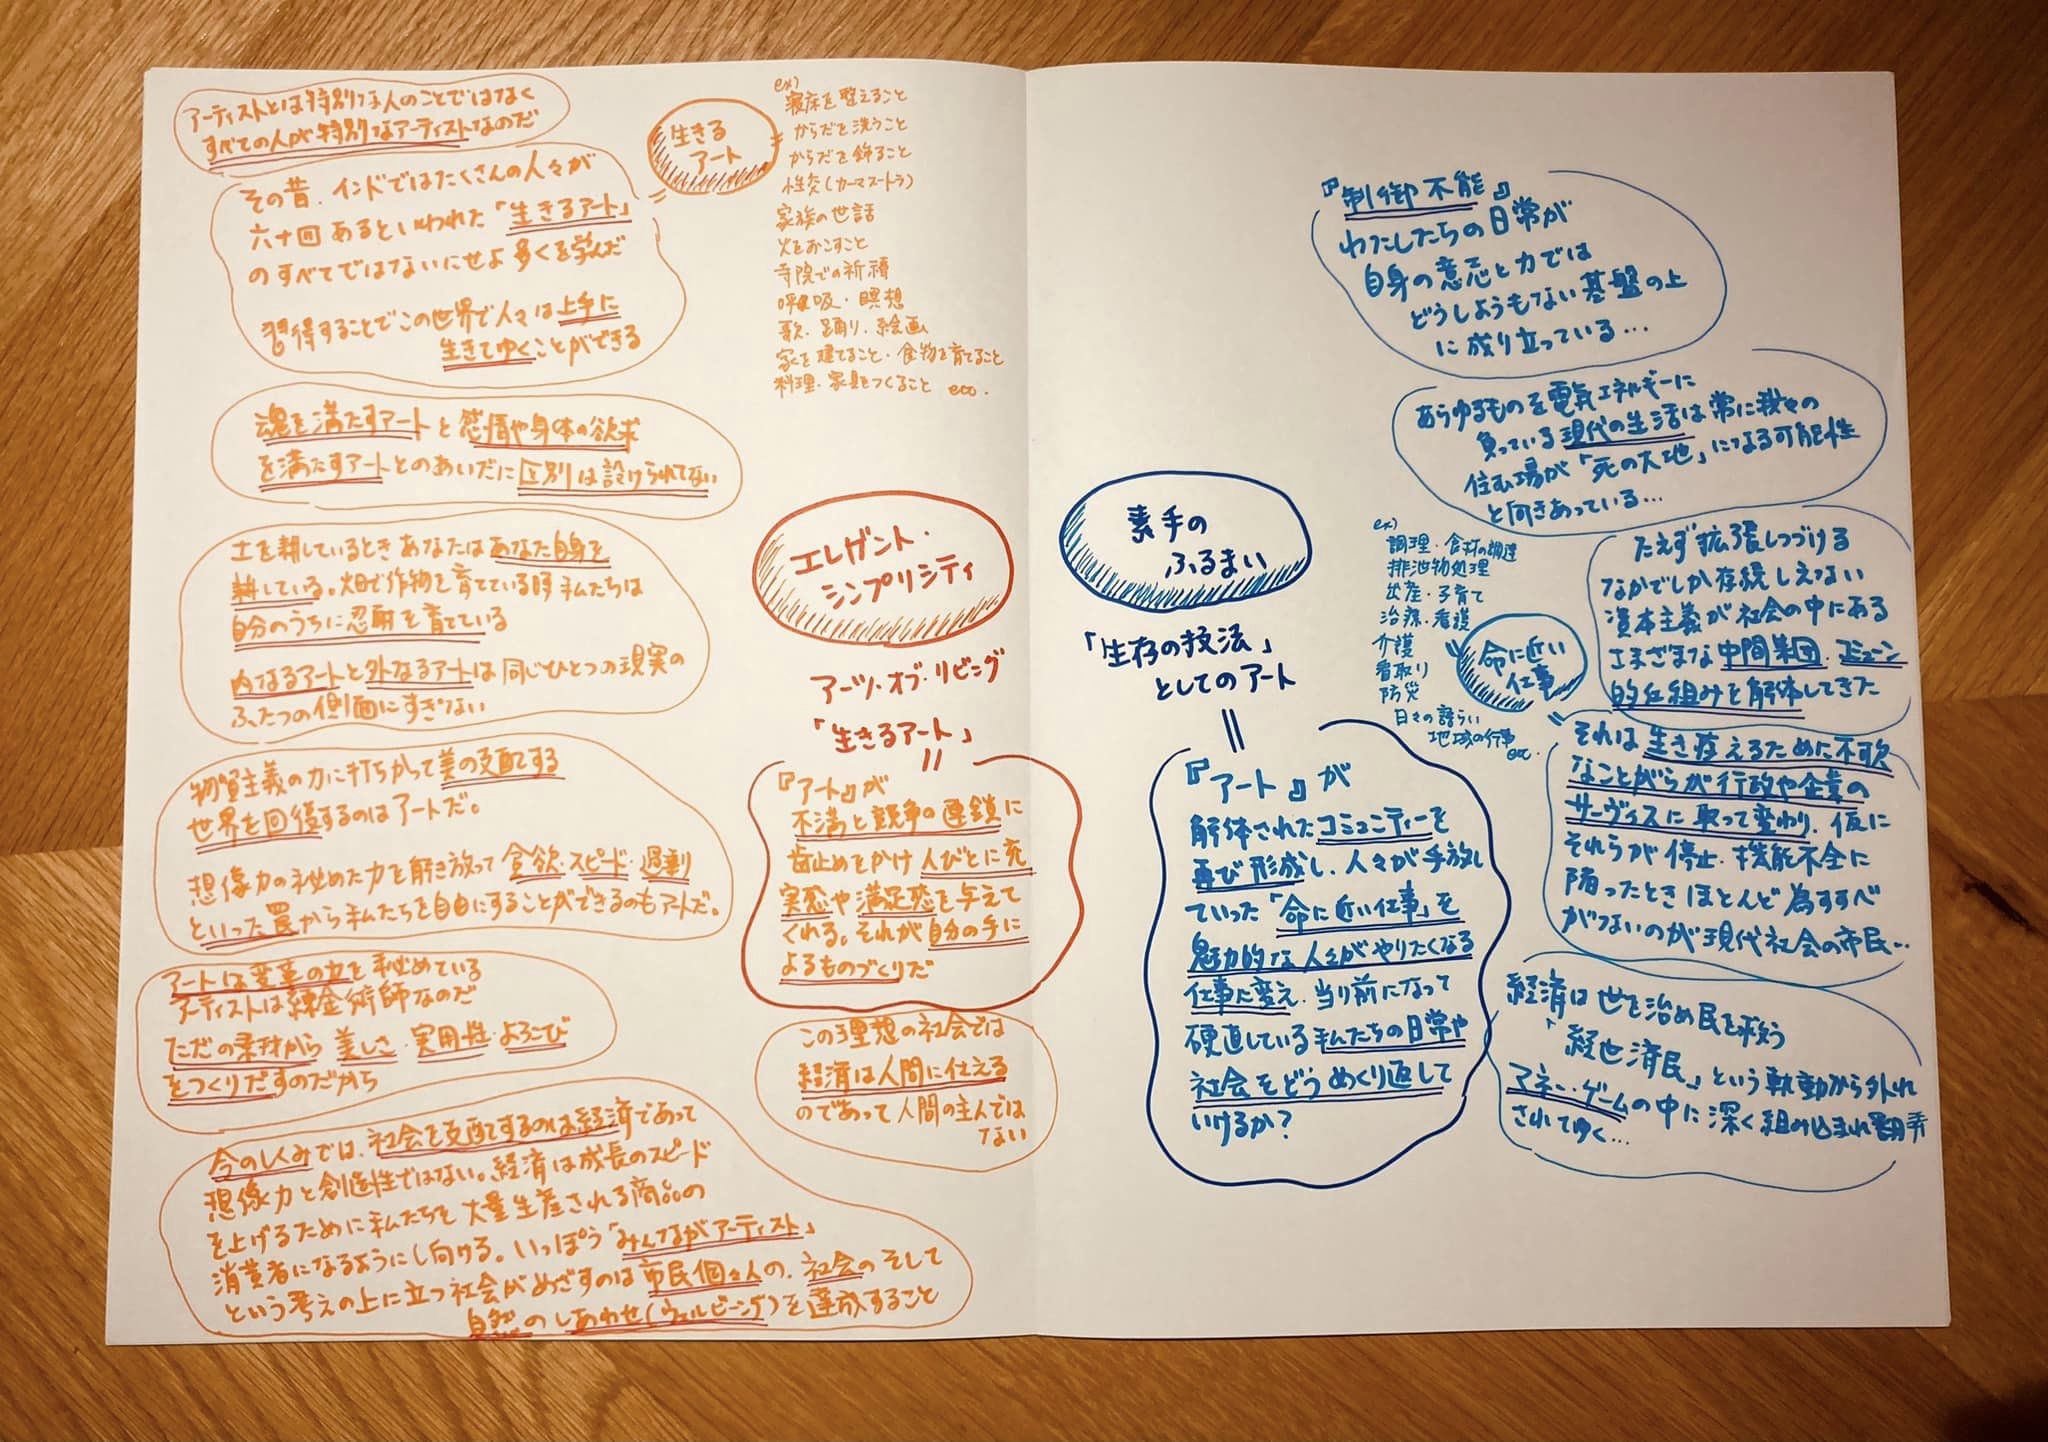 アーティストとは特別な人のことではなく
すべての人が特別なアーティストなのだ
生きる
アート
=
ex)
寝床を整えること
からだを洗うこと
からだを飾ること
性交(カーマスートラ)
家族の世話
火をおこすこと
寺院での祈禱
呼吸・瞑想
歌・踊り・絵画
家を建てること・食物を育てること
料理・家具をつくること etc.
=
その昔、インドではたくさんの人々が
六十四あるといわれた「生きるアート」
のすべてではないにせよ多くを学んだ
習得することでこの世界で人々は上手に
生きてゆくことができる
魂を満たすアートと感情や身体の欲求
を満たすアートとのあいだに区別は設けられてない
土を耕しているときあなたはあなた自身を
耕している。畑で作物を育てている時私たちは
自分のうちに忍耐を育てている
内なるアートと外なるアートは同じひとつの現実の
ふたつの側面にすぎない
物質主義の力に打ちかって美の支配する
世界を回復するのはアートだ。
想像力の秘めた力を解き放って貪欲・スピード・過剰
といった罠から私たちを自由にすることができるのもアートだ。
アートは変革の力を秘めている
アーティストは錬金術師なのだ
ただの素材から美しさ・実用性・よろこび
をつくりだすのだから
今のしくみでは、社会を支配するのは経済であって
想像力と創造性ではない。経済は成長のスピード
を上げるために私たちを大量生産される商品の
消費者になるようにし向ける。いっぽう「みんながアーティスト」
という考えの上に立つ社会がめざすのは市民個々人の、社会のそして
自然のしあわせ(ウェルビーング)を達成すること
エレガント・
シンプリシティ
アーツ・オブ・リビング
「生きるアート」
=
『アート』が
不満と競争の連鎖に
歯止めをかけ人びとに充
実感や満足感を与えて
くれる。それが自分の手に
よるものづくりだ
この理想の社会では
経済は人間に仕える
のであって人間の主人では
ない
素手の
ふるまい
「生存の技法」
としてのアート
=
『アート』が
解体されたコミュニティーを
再び形成し、人々が手放し
ていった「命に近い仕事」を
魅力的な人々がやりたくなる
仕事に変え、当り前になって
硬直している私たちの日常や
社会をどうめくり返して
いけるか?
『制御不能』
わたしたちの日常が
自身の意志と力では
どうしようもない基盤の上
に成り立っている…
あらゆるものを電気エネルギーに
負っている現代の生活は常に我々の
住む場が「死の大地」になる可能性
と向きあっている…
ex)
調理・食材の調達
排泄物処理
出産・子育て
治療・看護
介護
看取り
防災
日々の語らい
地域の行事
etc.
=
命に近い
仕事
=
たえず拡張しつづける
なかでしか存続しえない
資本主義が社会の中にある
さまざまな中間集団・コミューン
的仕組みを解体してきた
それは生き延えるために不可欠
なことがらが行政や企業の
サーヴィスに取って変わり、仮に
それらが停止・機能不全に
陥ったときほとんど為すすべ
がないのが現代社会の市民…
経済は世を治め民を救う
「経世済民」という軌動から外れ
マネー・ゲームの中に深く組み込まれ翻弄
されてゆく…